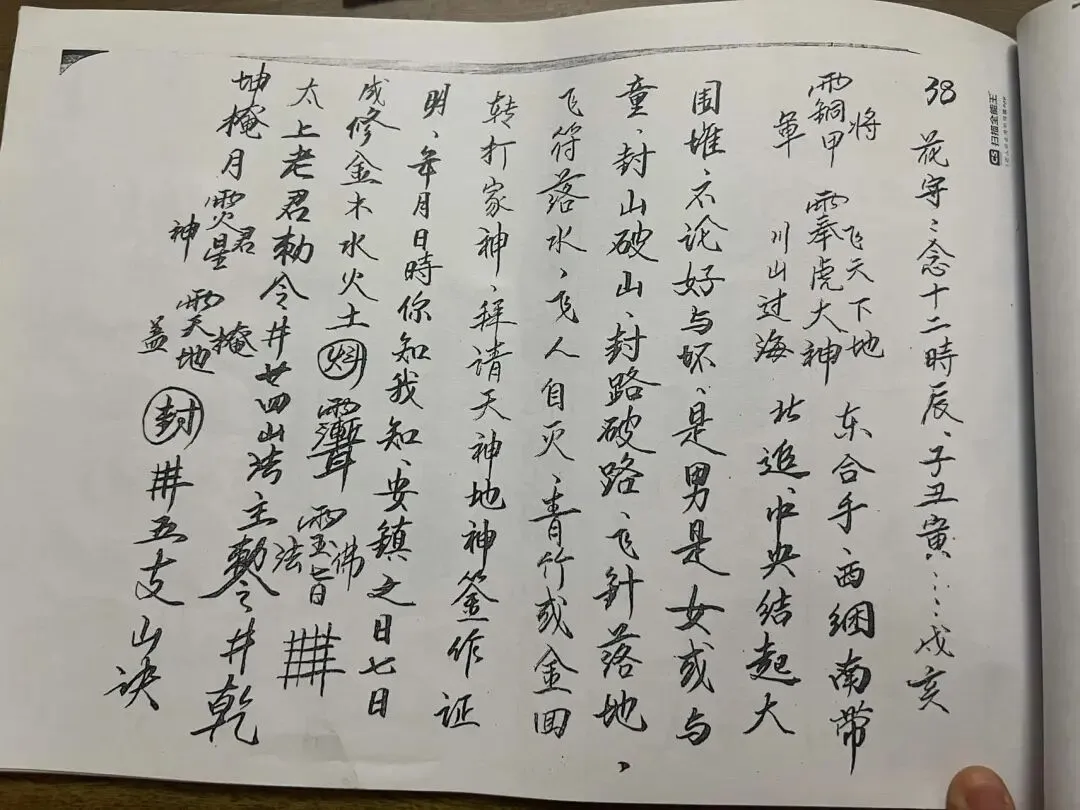 38 花字：念十二時辰、子丑寅……戌亥
銅甲將軍 奉虎大神 飞天下地 川山过海 东合手、西綑南带
北追、中央结起大
围堆、不论好与坏、是男是女或与
童、封山破山、封路破路、飞針落地、
飞符落水、飞人自灭、青竹或金回
转打家神、拜请天神地神签作证
明、年月日時你知我知、安鎮之日七日
成修金木水火土 佛法 旨
太上老君勅令井廿四山法主勅令井乾
坤掩月 火星君神 天地掩盖 封 井五支山诀
扫描全能王
CS